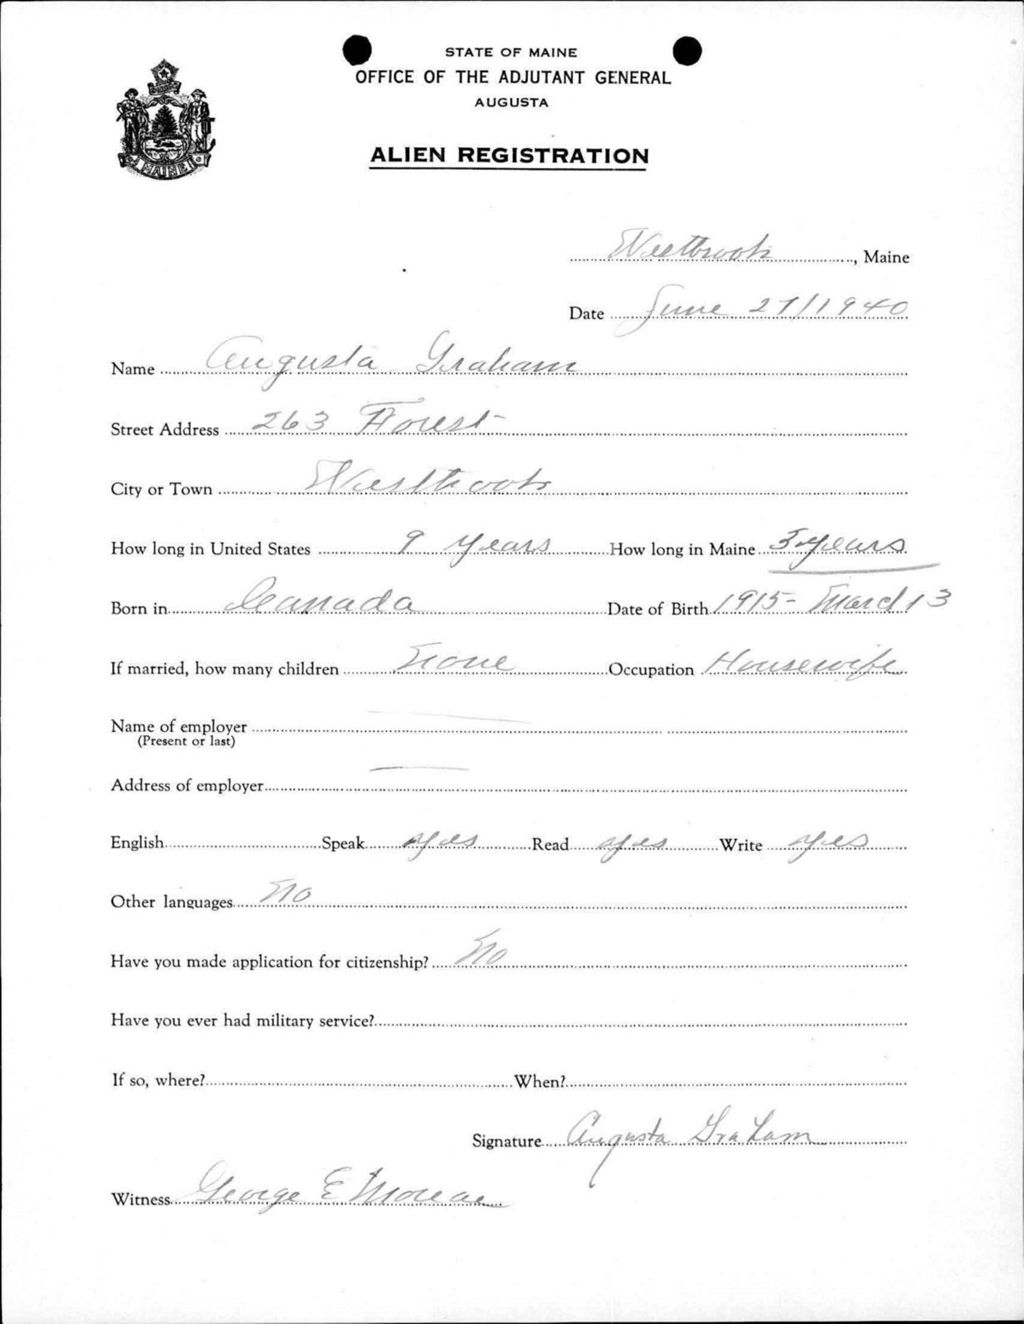 STATE OF MAINE
OFFICE OF THE ADJUTANT GENERAL
AUGUSTA
ALIEN REGISTRATION
MAINE
Westbrook, Maine
Date June 27/1940
Name Augusta Graham
Street Address 263 Forest
City or Town Westbrook
How long in United States 9 years How long in Maine 3 years
Born in Canada Date of Birth 1915 - March 13
If married, how many children None Occupation Housewife
Name of employer
(Present or last)
Address of employer
English Speak yes Read yes Write yes
Other languages No
Have you made application for citizenship? No
Have you ever had military service?
If so, where? When?
Signature Augusta Graham
Witness George E